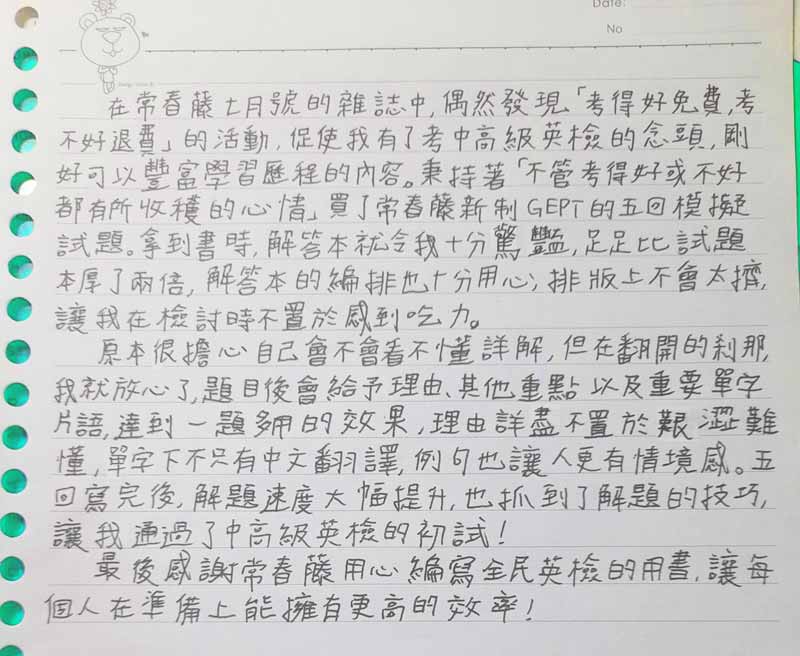 Date:
No
在常春藤七月號的雜誌中，偶然發現「考得好免費，考
不好退費」的活動，促使我有了考中高級英檢的念頭，剛
好可以豐富學習歷程的內容。秉持著「不管考得好或不好
都有所收穫的心情」買了常春藤新制GEPT的五回模擬
試題。拿到書時，解答本就令我十分驚豔，足足比試題
本厚了兩倍，解答本的編排也十分用心；排版上不會太擠，
讓我在檢討時不置於感到吃力。
原本很擔心自己會不會看不懂詳解，但在翻開的剎那，
我就放心了，題目後會給予理由、其他重點以及重要單字
片語，達到一題多用的效果，理由詳盡不置於艱澀難
懂，單字下不只有中文翻譯，例句也讓人更有情境感。五
回寫完後，解題速度大幅提升，也抓到了解題的技巧，
讓我通過了中高級英檢的初試！
最後感謝常春藤用心編寫全民英檢的用書，讓每
個人在準備上能擁有更高的效率！